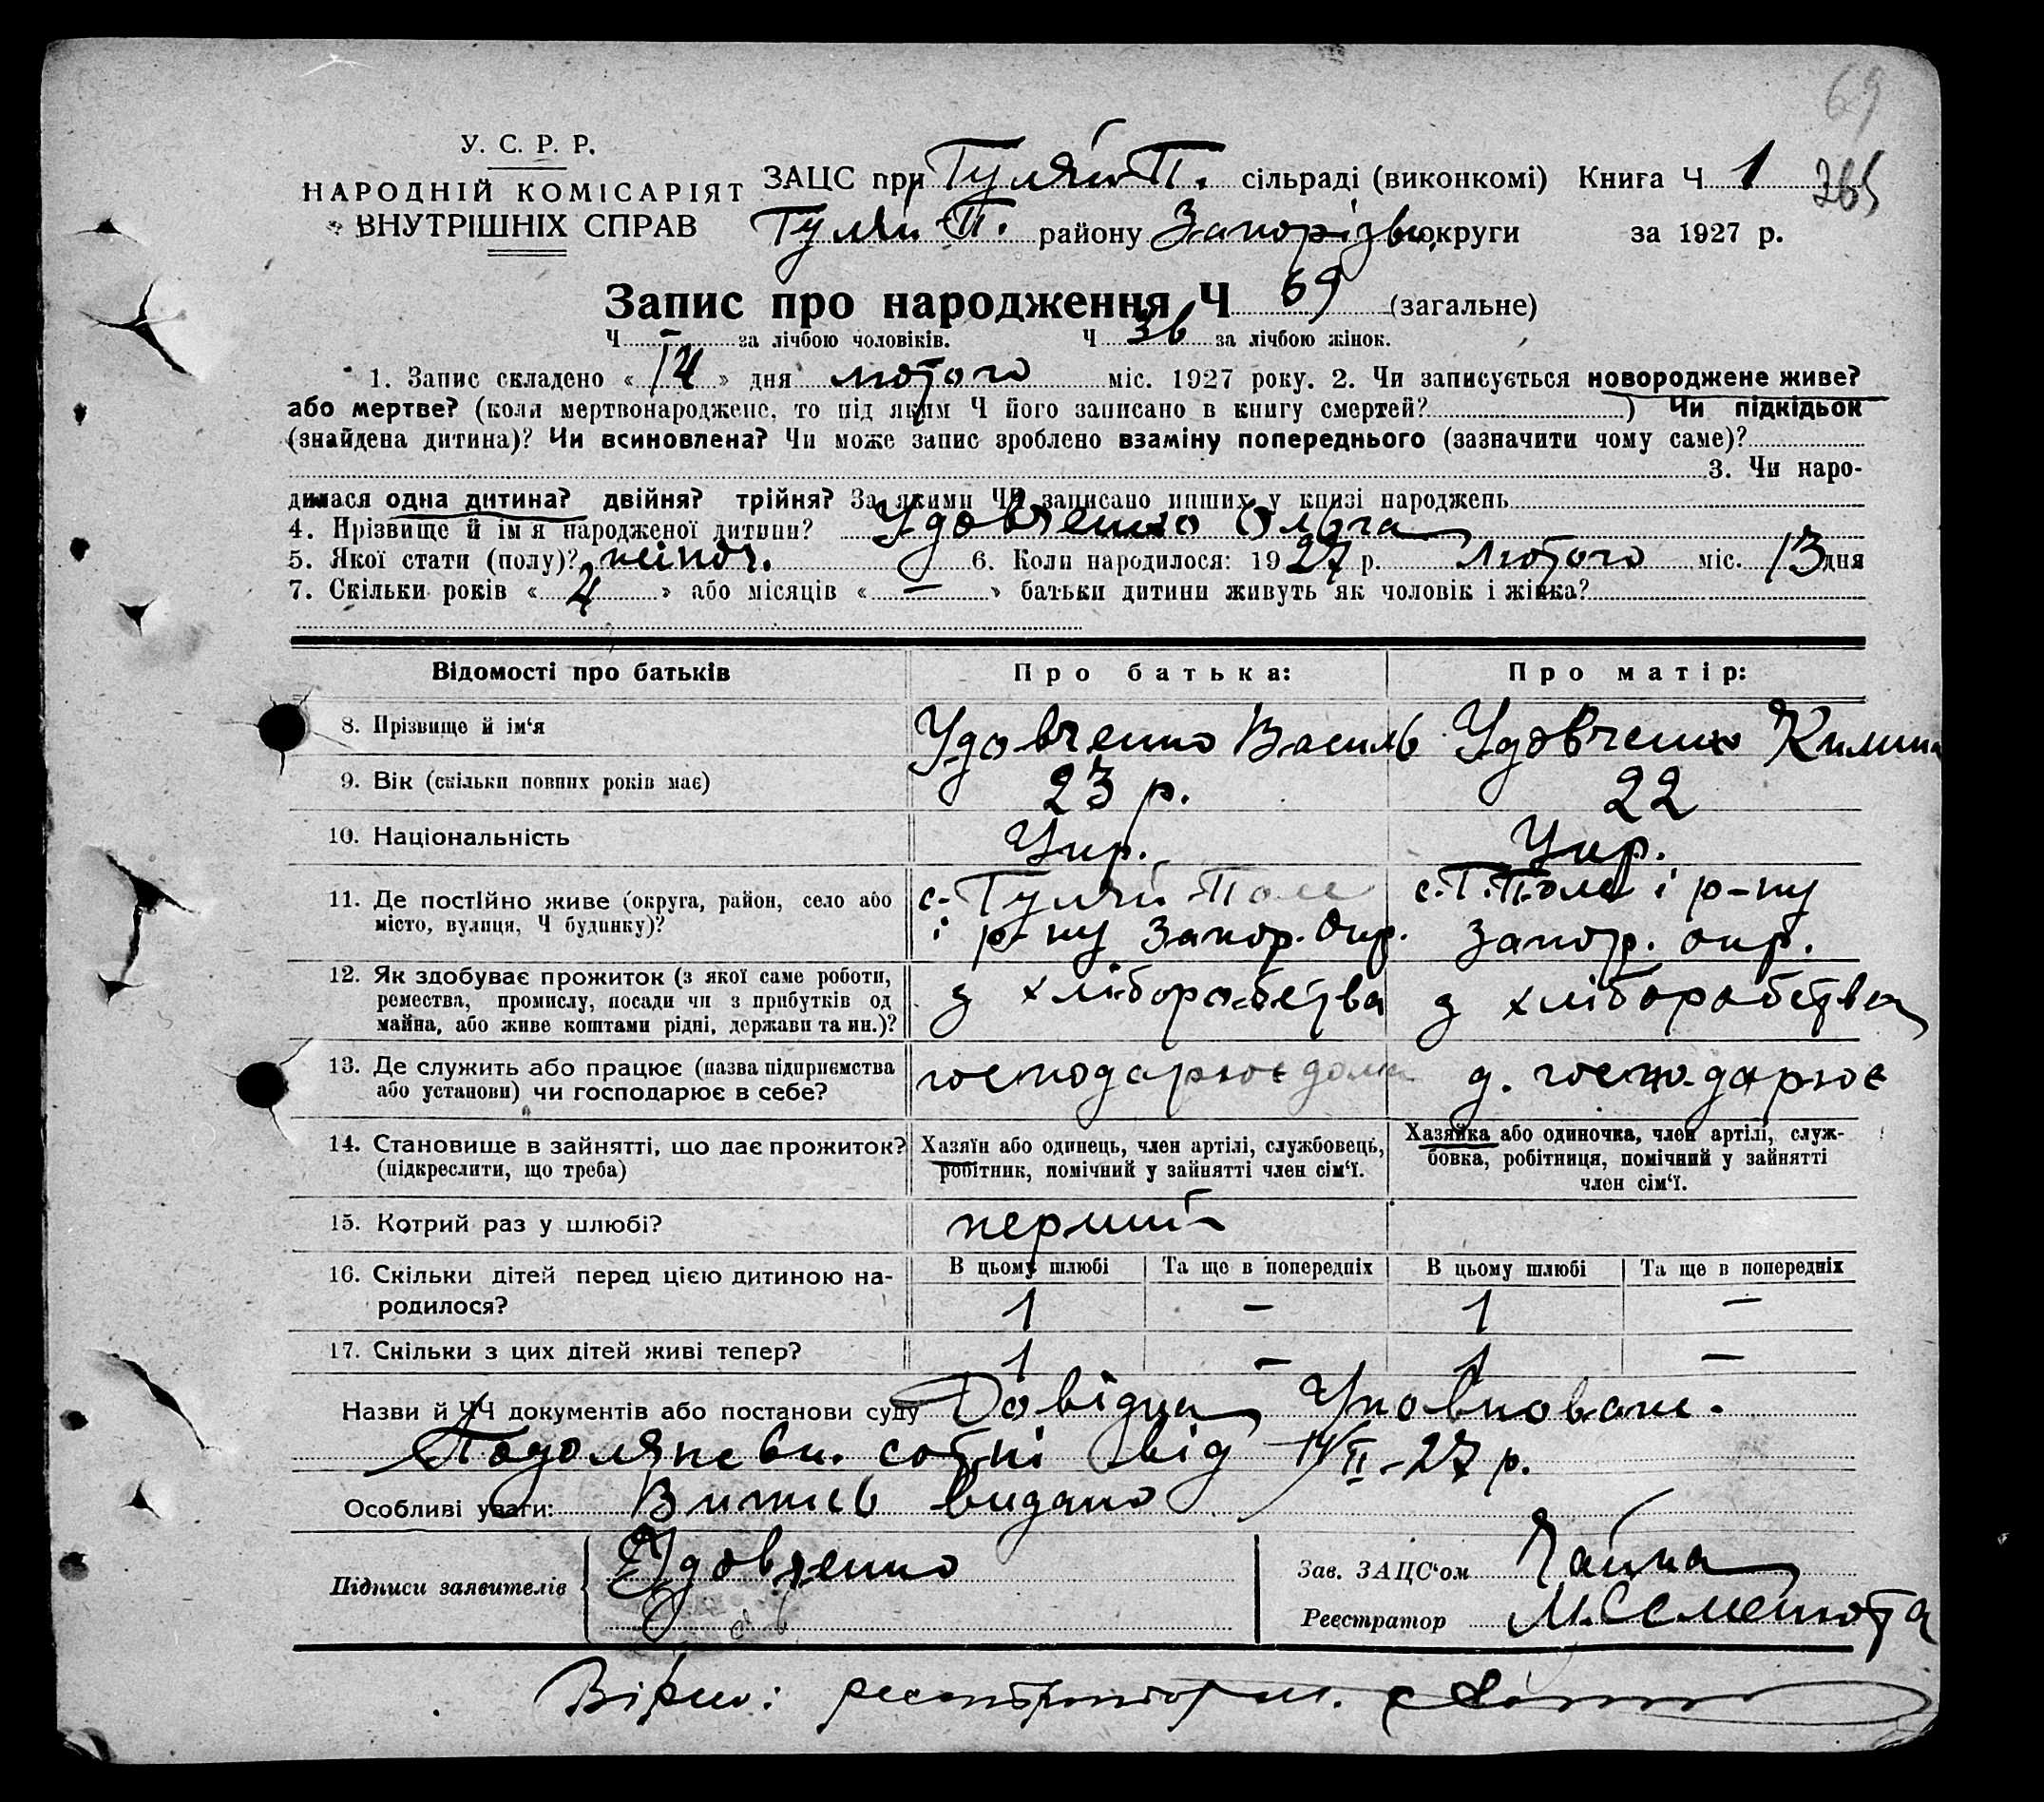 69
У. С. Р. Р.
НАРОДНІЙ КОМІСАРІЯТ
ВНУТРІШНІХ СПРАВ
ЗАЦС при Гуляй П. сільраді (виконкомі) Книга Ч 1
265
Гуляй П. району Запорізьк. округи за 1927 р.
Запис про народження Ч 69 (загальне)
Ч — за лічбою чоловіків. Ч 36 за лічбою жінок.
1. Запис складено « 14 » дня лютого міс. 1927 року. 2. Чи записується новороджене живе?
або мертве? (коли мертвонароджене, то під яким Ч його записано в книгу смертей? ) Чи підкідьок
(знайдена дитина)? Чи всиновлена? Чи може запис зроблено взаміну попереднього (зазначити чому саме)?
3. Чи наро-
дилася одна дитина? двійня? трійня? За якими ЧЧ записано инших у книзі народжень
4. Прізвище й ім'я народженої дитини? Удовченко Ольга
5. Якої стати (полу)? жіноч. 6. Коли народилося: 1927 р. Лютого міс. 13 дня
7. Скільки років « 4 » або місяців « — » батьки дитини живуть як чоловік і жінка?
Відомості про батьків Про батька: Про матір:
8. Прізвище й ім'я Удовченко Василь Удовченко Килина
9. Вік (скільки повних років має) 23 р. 22
10. Національність Укр. Укр.
11. Де постійно живе (округа, район, село або місто, вулиця, Ч будинку)? с. Гуляй Поле і р-ну Запор. Окр. с. Г. Поле і р-ну Запор. окр.
12. Як здобуває прожиток (з якої саме роботи, ремества, промислу, посади чи з прибутків од майна, або живе коштами рідні, держави та ин.)? з хліборобства з хліборобства
13. Де служить або працює (назва підприємства або установи) чи господарює в себе? господарює дома д. господарює
14. Становище в зайнятті, що дає прожиток? (підкреслити, що треба) Хазяїн або одинець, член артілі, службовець, робітник, помічний у зайнятті член сім'ї. Хазяйка або одиночка, член артілі, служ-бовка, робітниця, помічний у зайнятті член сім'ї.
15. Котрий раз у шлюбі? перший
16. Скільки дітей перед цією дитиною на-родилося? В цьому шлюбі Та ще в попередніх В цьому шлюбі Та ще в попередніх
1 — 1 —
17. Скільки з цих дітей живі тепер? 1 — 1 —
Назви й ЧЧ документів або постанови суду Довідка Уповноваж.
Подолянськ. сотні від 14/II-27 р.
Особливі уваги: Випись видано
Підписи заявителів Удовченко
Зав. ЗАЦС'ом Чайка
Реєстратор М. Семенюта
Вірно: реєстратор